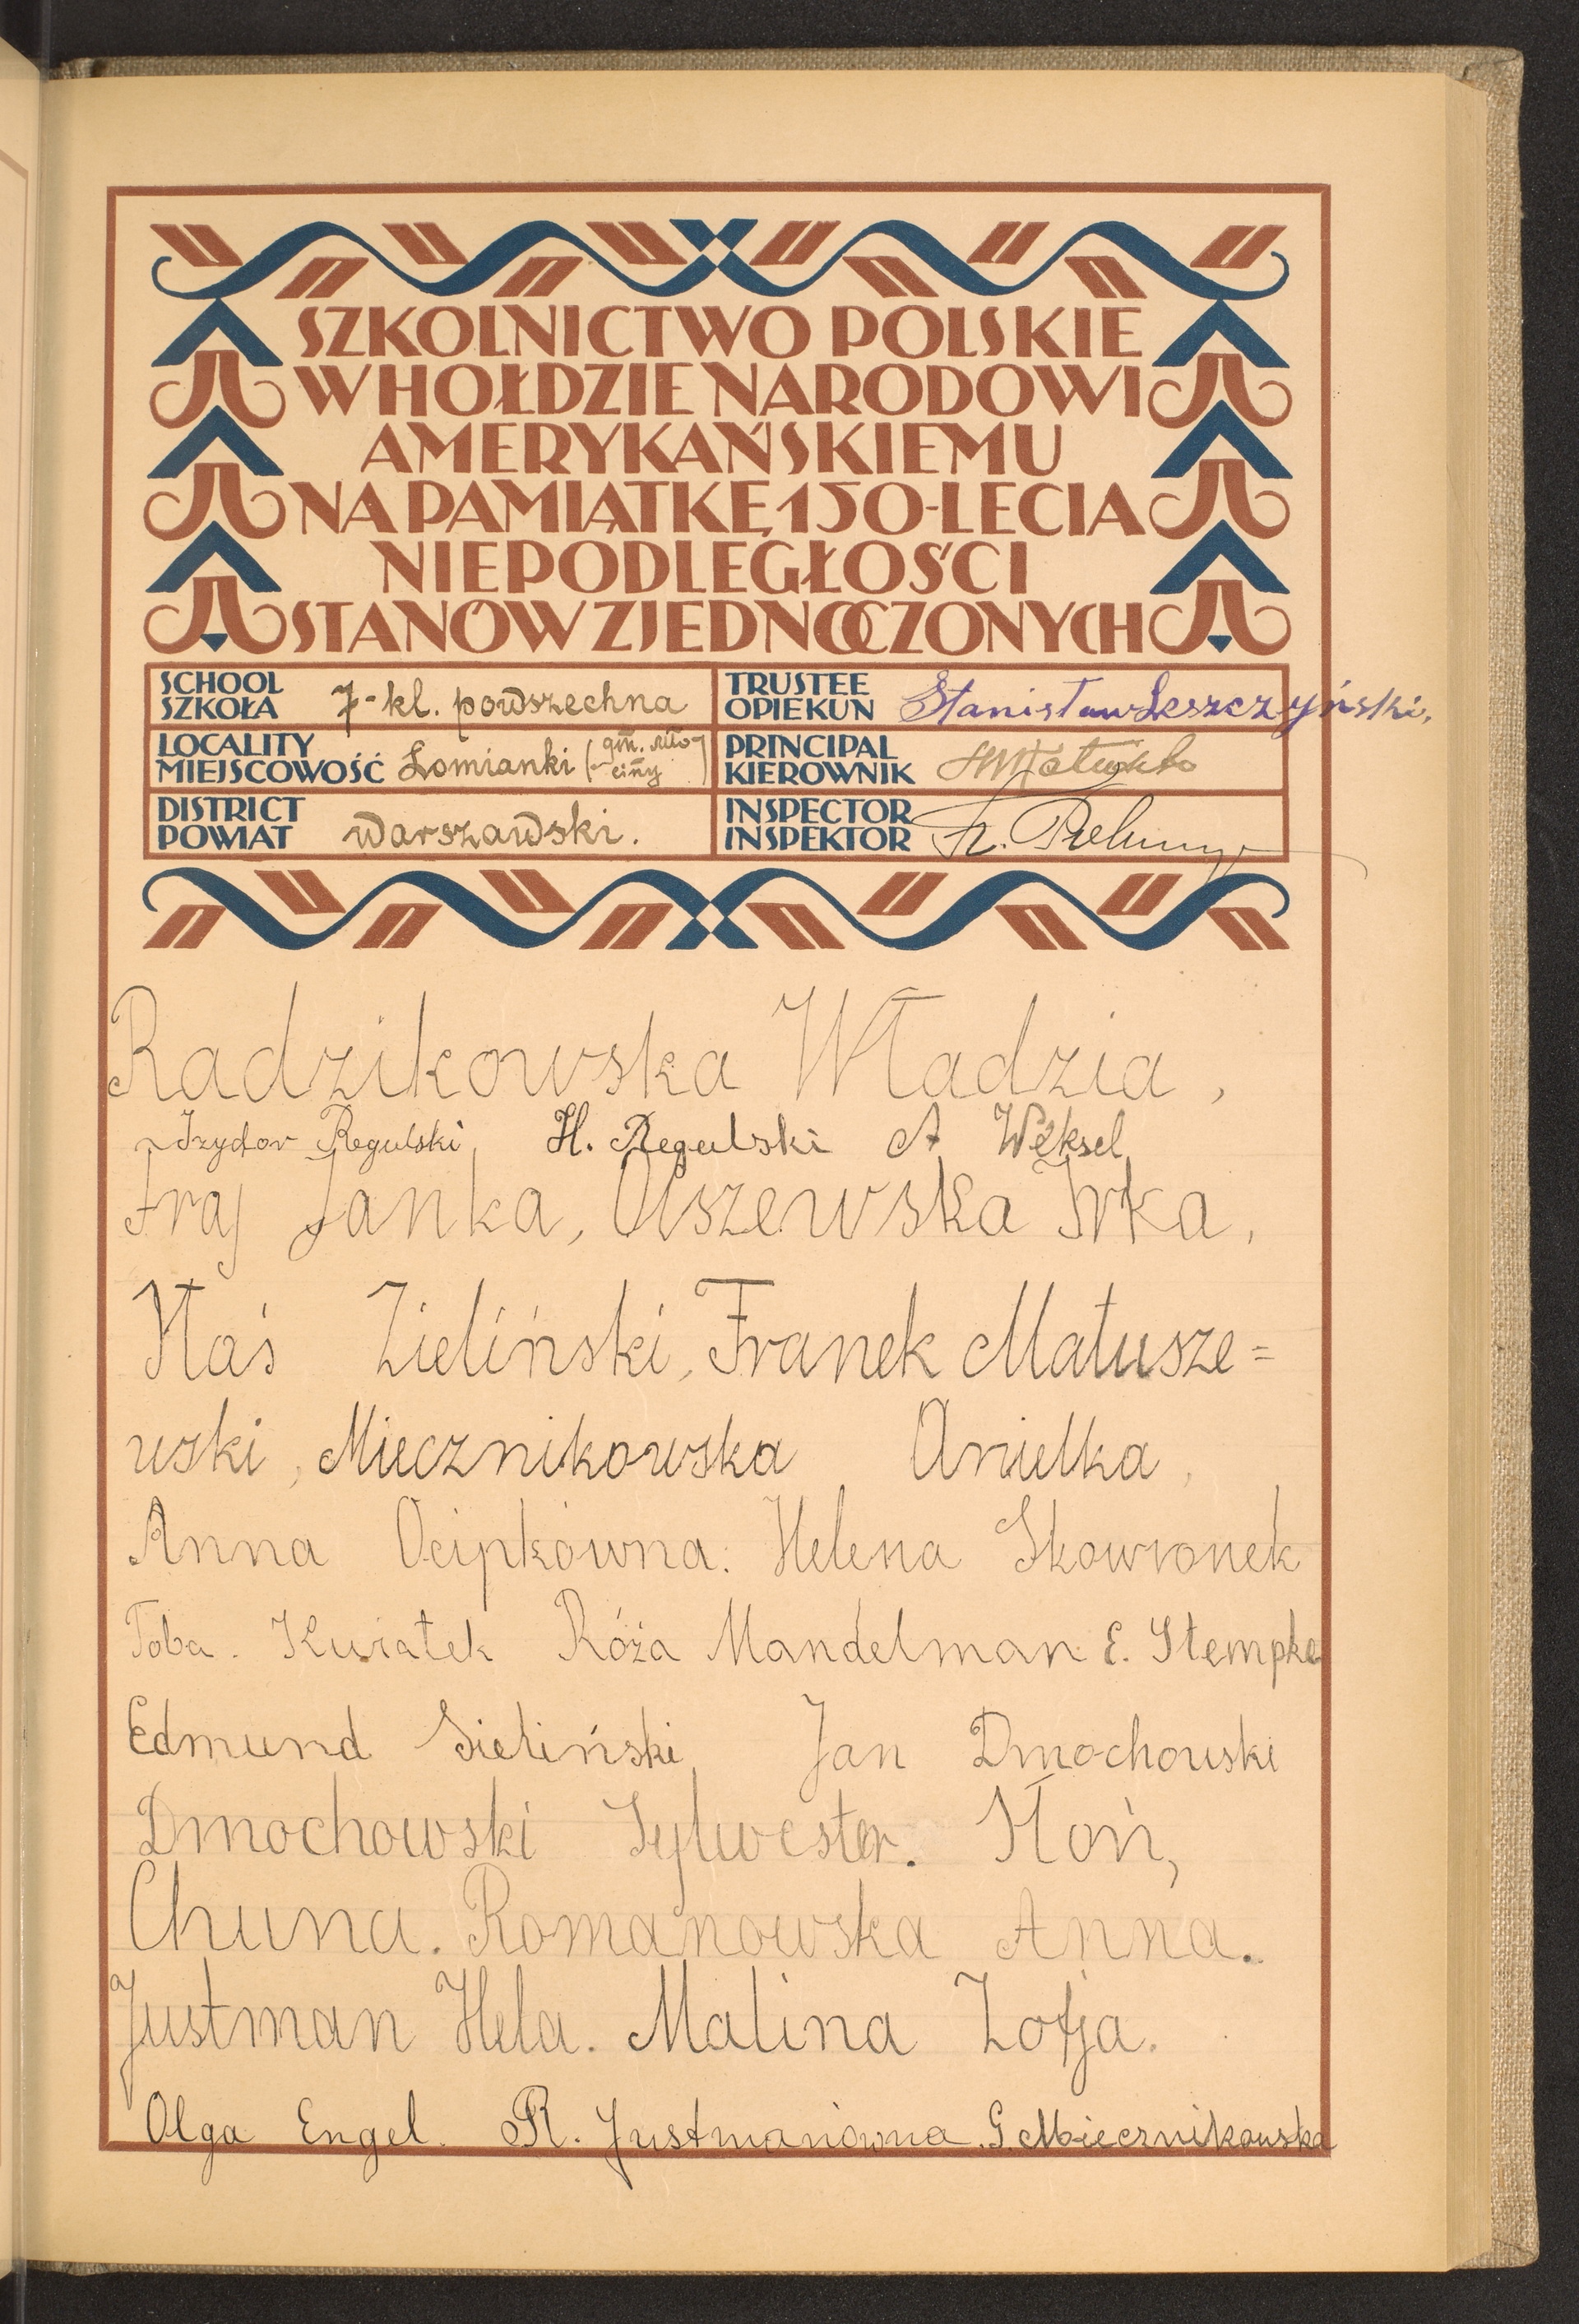 SZKOLNICTWO POLSKIE
W HOŁDZIE NARODOWI
AMERYKAŃSKIEMU
NA PAMIĄTKĘ 150-LECIA
NIEPODLEGŁOŚCI
STANÓW ZJEDNOCZONYCH
SCHOOL
SZKOŁA 7-kl. powszechna
TRUSTEE
OPIEKUN Stanisław Leszczyński.
LOCALITY
MIEJSCOWOŚĆ Łomianki (gm. Młociny)
PRINCIPAL
KIEROWNIK
DISTRICT
POWIAT warszawski.
INSPECTOR
INSPEKTOR Fr.
Radzikowska Władzia,
Izydor Regulski, H. Regulski A Weksel,
Fraj Janka, Olszewska Irka,
Staś Zieliński, Franek Matusze=
wski, Miecznikowska Anielka,
Anna Ocipkówna. Helena Skowronek
Toba. Kwiatek Róża Mandelman E. Stempke
Edmund Sieliński, Jan Dmochowski
Dmochowski Sylwester. Słoń,
Chuna. Romanowska Anna.
Justman Hela. Malina Zofja.
Olga Engel. R. Justmanówna. G. Miecznikowska